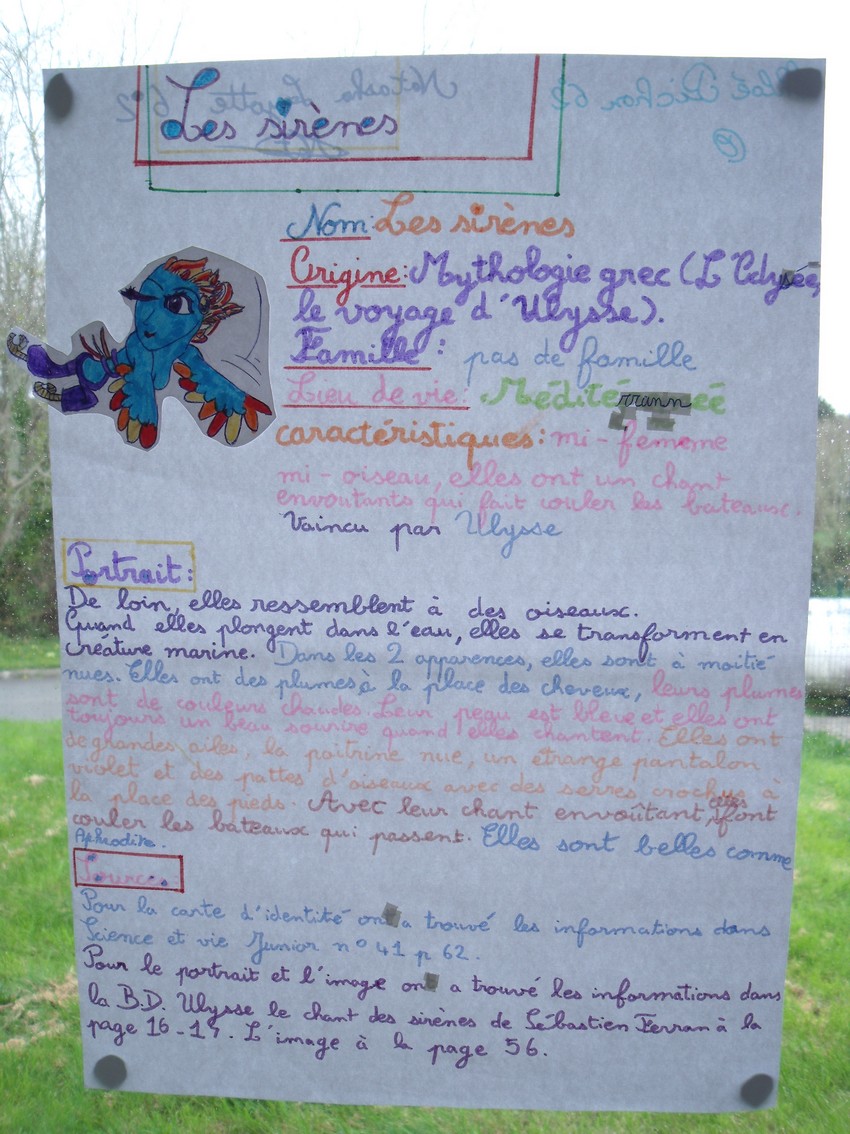 Les sirènes
Nom: Les sirènes
Origine: Mythologie grec (L'Odysée,
le voyage d'Ulysse).
Famille : pas de famille
Lieu de vie: Méditérrannéé
caractéristiques: mi-femme
mi-oiseau, elles ont un chant
envoutants qui fait couler les bateaux.
Vaincu par Ulysse
Portrait:
De loin, elles ressemblent à des oiseaux.
Quand elles plongent dans l'eau, elles se transforment en
créature marine. Dans les 2 apparences, elles sont à moitié
nues. Elles ont des plumes à la place des cheveux, leurs plumes
sont de couleurs chaudes. Leur peau est bleue et elles ont
toujours un beau sourire quand elles chantent. Elles ont
de grandes ailes, la poitrine nue, un étrange pantalon
violet et des pattes d'oiseaux avec des serres crochus à
la place des pieds. Avec leur chant envoûtant, elles font
couler les bateaux qui passent. Elles sont belles comme
Aphrodite.
Source
Pour la carte d'identité on a trouvé les informations dans
Science et vie Junior n°41 p 62.
Pour le portrait et l'image on a trouvé les informations dans
la B.D. Ulysse le chant des sirènes de Sébastien Ferran à la
page 16-17. L'image à la page 56.